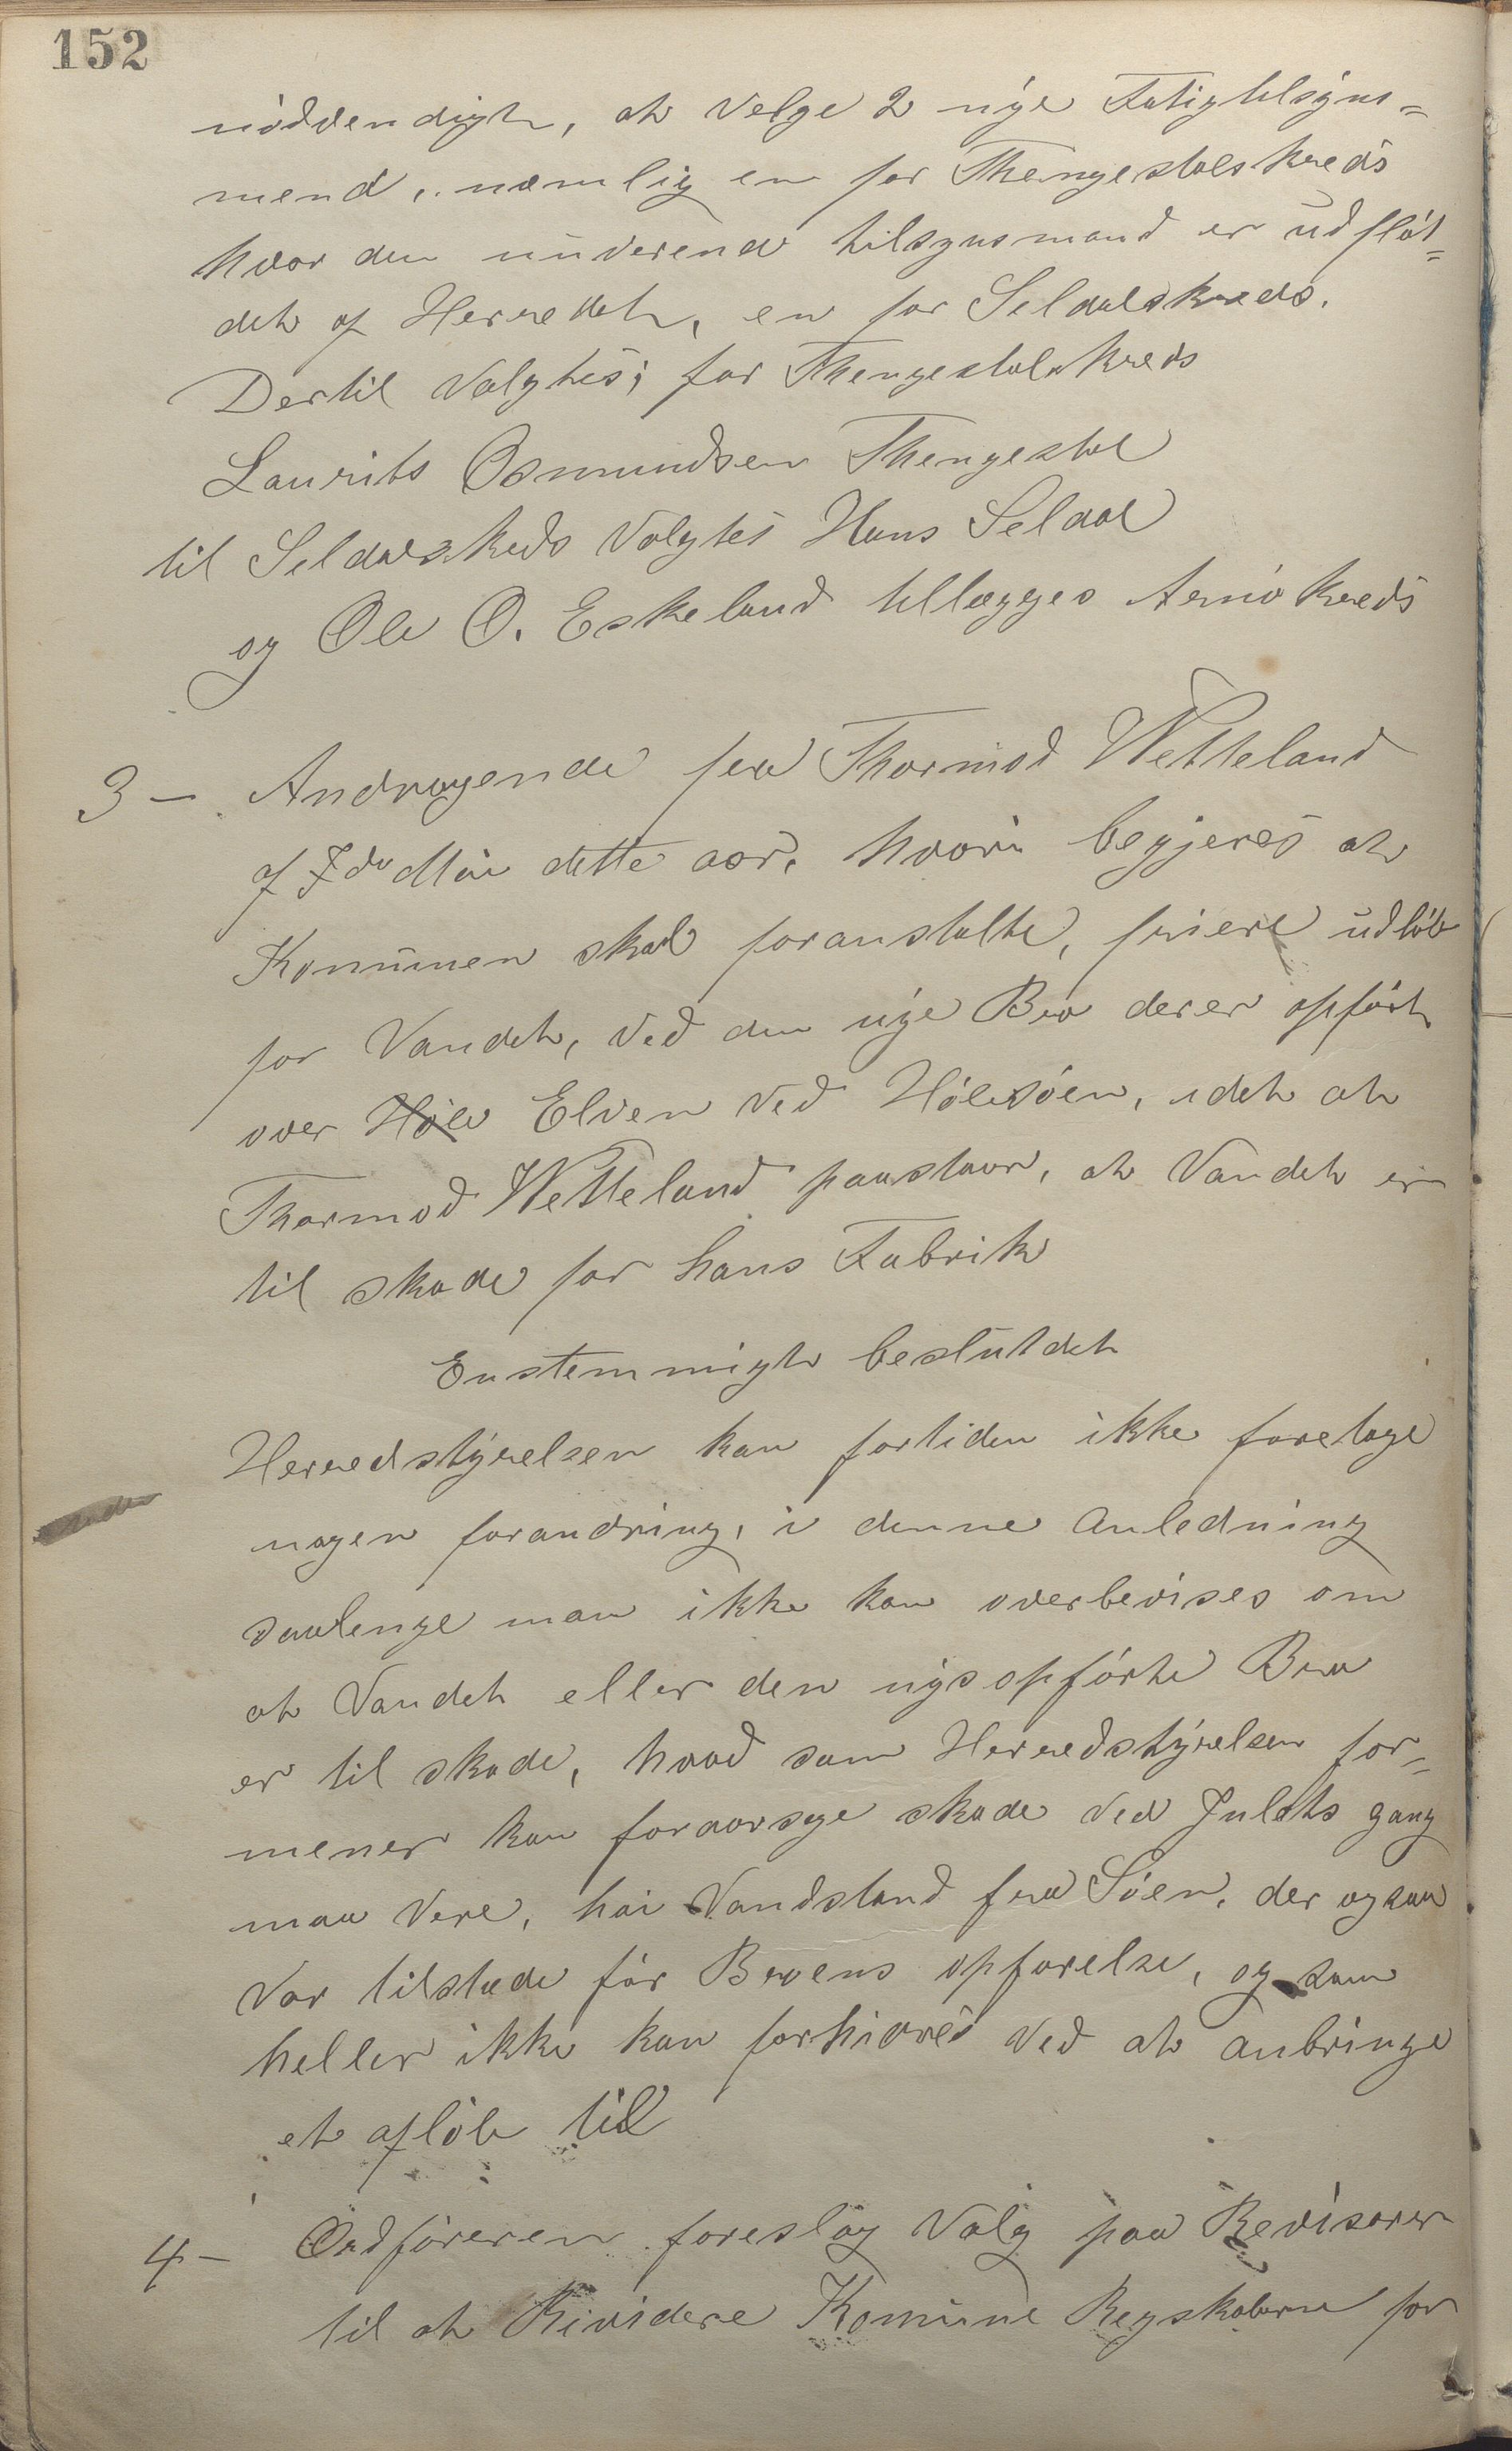 152
nöddvendigt, at Velge 2 nye Fatigtilsyns-
mend, nemlig en for Thengesdalskreds
hvor den nuverende tilsynsmand er udfløt-
det af Herredet, en for Seldalskreds.
Dertil Valgtes; for Thengesdalskreds
Laurits Osmundsen Thengesdal
til Seldalskreds Valgtes Hans Seldal
og Ole O. Eskeland tillægges Arnökreds
3 - Andragende fra Thormod Wetteland
af Mai dette aar, hvori begjeres at
Komunen skal foranstalte, friere udlöb
for Vandet, Ved den nye Bro der er opfört
over Höle Elven Ved Hölesöen, idet at
Thormod Wetteland paastaar, at Vandet er
til skade for hans Fabrik
Enstemmigt beslutdet
Herredstyrelsen kan fortiden ikke foretage
nogen forandring, i denne Anledning
saalenge man ikke kan overbevises om
at Vandet eller den nysopförte Bro
er til skade, hvad som Herredstyrelsen for-
mener kan foraarsage skade Ved Julets gang
maa Vere, høi Vandstand fra Söen, der ogsaa
Var tilstede för Broens opförelse, og som
heller ikke kan forhidres Ved at anbringe
et aflöb til
4 - Ordföreren foreslog Valg paa Revisorer
til at Rividere Komune Regskaberne for